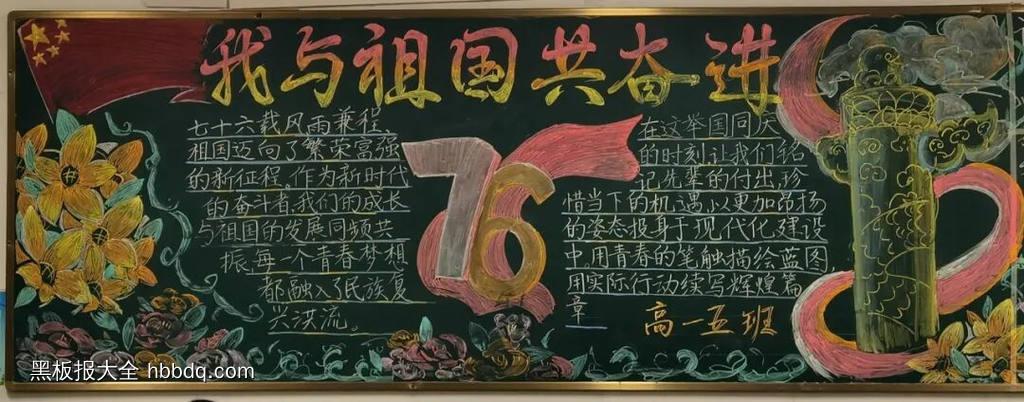 我与祖国共奋进
七十六载风雨兼程,
祖国迈向了繁荣富强
的新征程。作为新时代
的奋斗者,我们的成长
与祖国的发展同频共
振,每一个青春梦想
都融入了民族复
兴洪流。
76
在这举国同庆
的时刻,让我们铭
记先辈的付出,珍
惜当下的机遇,以更加昂扬
的姿态投身于现代化建设
中用青春的笔触描绘蓝图
用实际行动续写辉煌篇
章
高一五班
黑板报大全 hbbdq.com